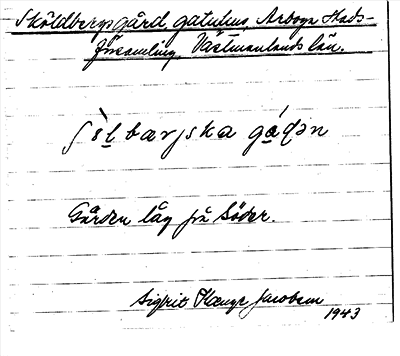 Sköldbergsgård, gatuhus, Arboga Stads-
församling, Västmanlands län.
ʃö̀lbærjska gá̱ɖən
Gården låg på Söder.
Sigfrid Jacobson
1943